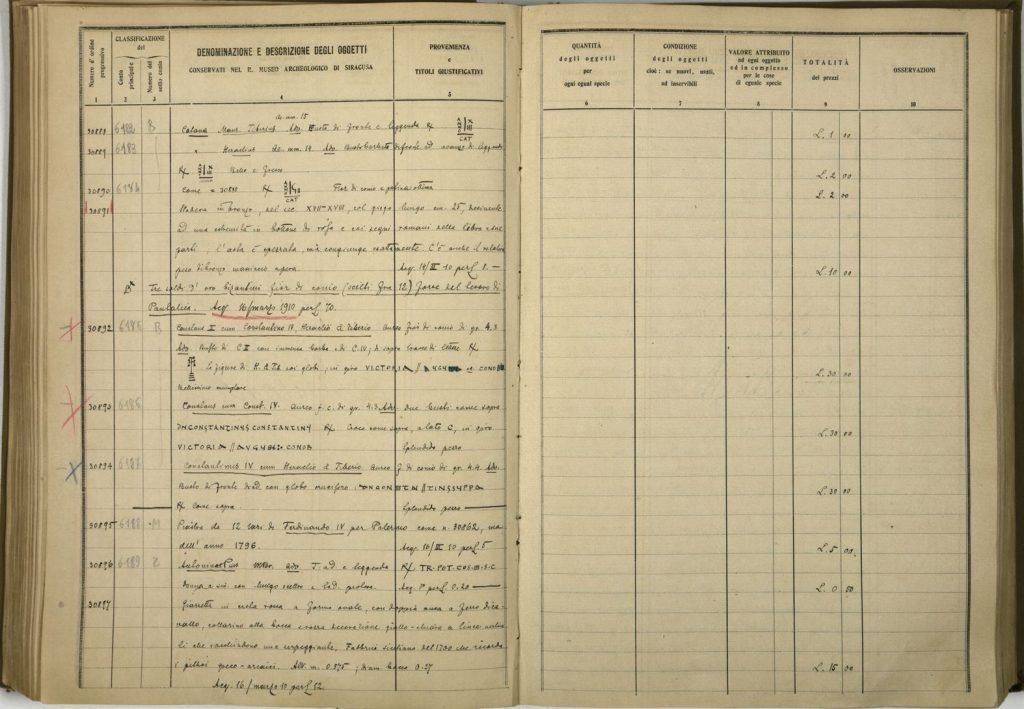 Numero d'ordine progressivo
CLASSIFICAZIONE del
Conto principale
Numero del sotto conto
DENOMINAZIONE E DESCRIZIONE DEGLI OGGETTI
CONSERVATI NEL R. MUSEO ARCHEOLOGICO DI SIRACUSA
PROVENIENZA
e
TITOLI GIUSTIFICATIVI
1 2 3 4 5
de mm. 15
6182 B Catana Maur. Tiberius Ads. Busto di fronte e leggenda R/
CAT
30889 6183 " Heraclius de mm. 14 Ads. Busto barbato di fronte ad
R/ Bello e
30890 6184 Come n 30888 R/ Fior di conio e patina ottima
CAT
30891 Stadera in bronzo, del sec. XVII-XVIII, col giogo lungo cm. 25, desinente
ad una estremità in bottone di rosa e coi segni romani delle libbre
l'asta è spezzata, ma congiunge esattamente. C'è anche il relativo
peso di bronzo
Acq. 14/III 10 per £ 8. —
Tre soldi d'oro bizantini fior di conio (scelti fra 12) forse del tesoro di
Pantalica. Acq. 16/marzo 1910 per £ 70.
30892 6185 B Constans II cum Constantino IV, Heraclio et Tiberio Aureo fior di conio di gr. 4.3
Ads. Busti di C II con immensa barba e di C. IV; di sopra
R/
Le figure di H. e Tib coi globi, in giro VICTORIA // CONOB
30893 6186 Constans cum Const. IV. Aureo f. c. di gr. 4.3 Ads. due busti come sopra
DNCONSTANTINYS CONSTANTINY R/ Croce come sopra, a lato C, in giro
VICTORIA // AVGYS CONOB Splendido pezzo
30894 6187 Constantinus IV cum Heraclio et Tiberio Aureo f. di conio di gr. 4.4 Ads.
Busto di fronte diad. con globo crucifero
R/ Come sopra Splendido pezzo
30895 6188 M Piastra da 12 tarì di Ferdinando IV per Palermo come n. 30862, ma
dell' anno 1796. Acq. 16/III 10 per £ 5
30896 6189 Z Antoninus Pius MBr. Ads. T. ad. e leggenda R/ TR·POT·COS·III·S·C
Donna a sin. con lungo scettro e Acq. per £ 0.20
30897 Giarretta in creta rossa a forma ovale, con doppia ansa a ferro di ca-
vallo, collarino alla bocca e rozza decorazione giallo-chiara a linee
li che racchiudono una serpeggiante. Fabbrica siciliana del 1700 che ricorda
i pithoi greco-arcaici. Alt. m. 0.375; diam. bocca 0.27
Acq. 16/marzo 10 per £ 12.
QUANTITÀ
degli oggetti
per
ogni eguale specie
CONDIZIONE
degli oggetti
cioè: se nuovi, usati,
od inservibili
VALORE ATTRIBUITO
ad ogni oggetto
ed in complesso
per le cose
di eguale specie
TOTALITÀ
dei prezzi
OSSERVAZIONI
6 7 8 9 10
L. 1 00
L. 2 00
L. 2 00
L. 10 00
L. 30 00
L. 30 00
L. 30 00
L. 5 00
L. 0 50
L. 15 00